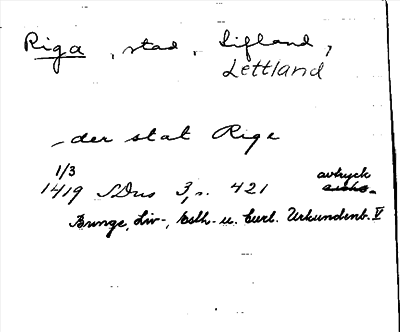 Riga, stad, Lifland,
Lettland
_ der stat Rige
1/3 avtryck
1419 SDns 3, s. 421
Bunge, Liv-, Esth- u. Curl. Urkundenb. V